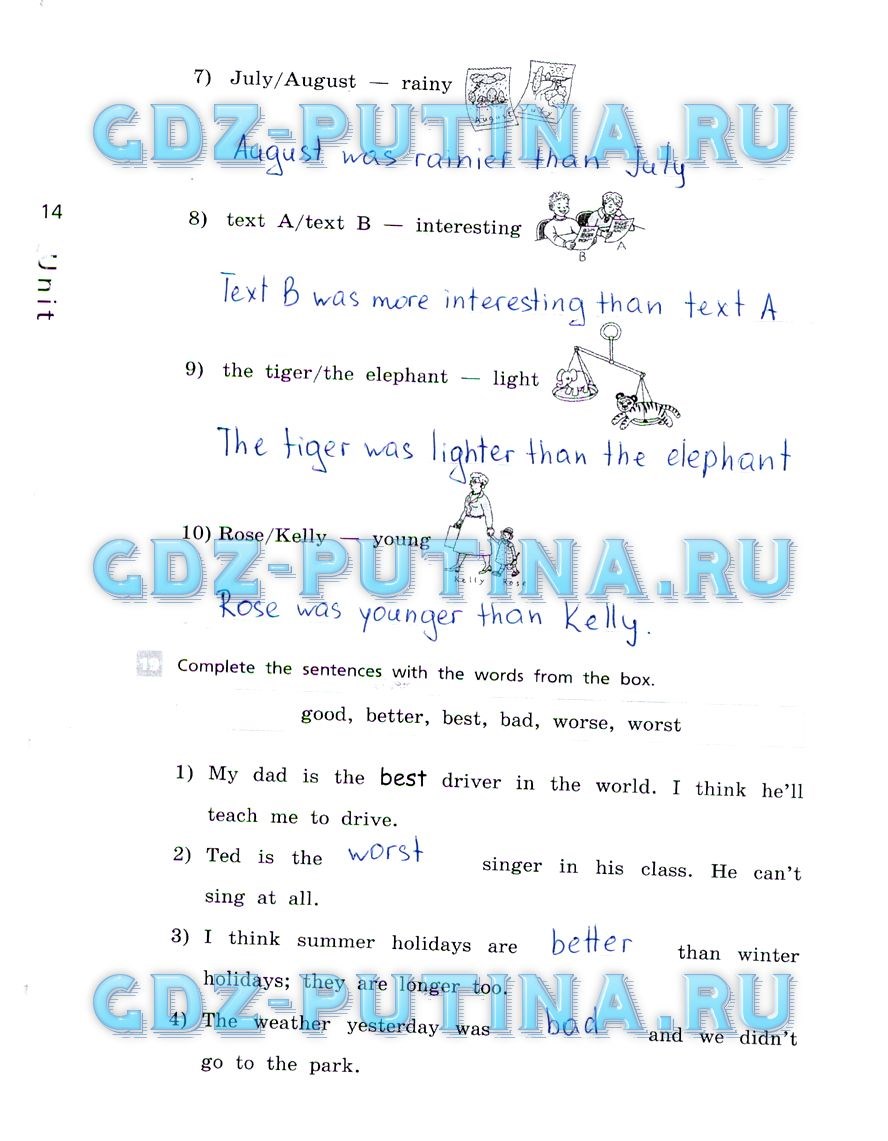 7) July/August — rainy
August July
GDZ-PUTINA.RU
August was rainier than July
14
Unit
8) text A/text B — interesting
B A
Text B was more interesting than text A
9) the tiger/the elephant — light
The tiger was lighter than the elephant
10) Rose/Kelly — young
Kelly Rose
GDZ-PUTINA.RU
Rose was younger than Kelly.
Complete the sentences with the words from the box.
good, better, best, bad, worse, worst
1) My dad is the best driver in the world. I think he'll
teach me to drive.
2) Ted is the worst singer in his class. He can't
sing at all.
3) I think summer holidays are better than winter
holidays; they are longer too.
GDZ-PUTINA.RU
4) The weather yesterday was bad and we didn't
go to the park.